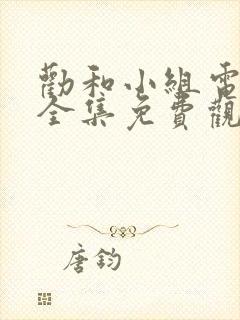 勸和小組電
全集免費觀
唐鈞